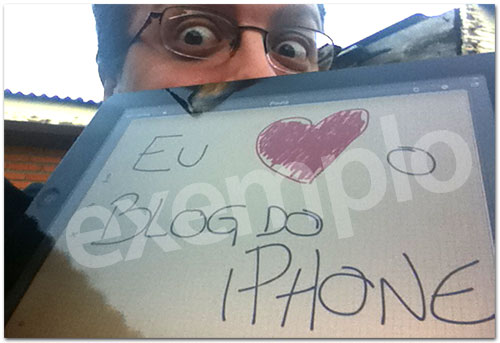 EU ❤ O
BLOG DO
iPHONE
exemplo